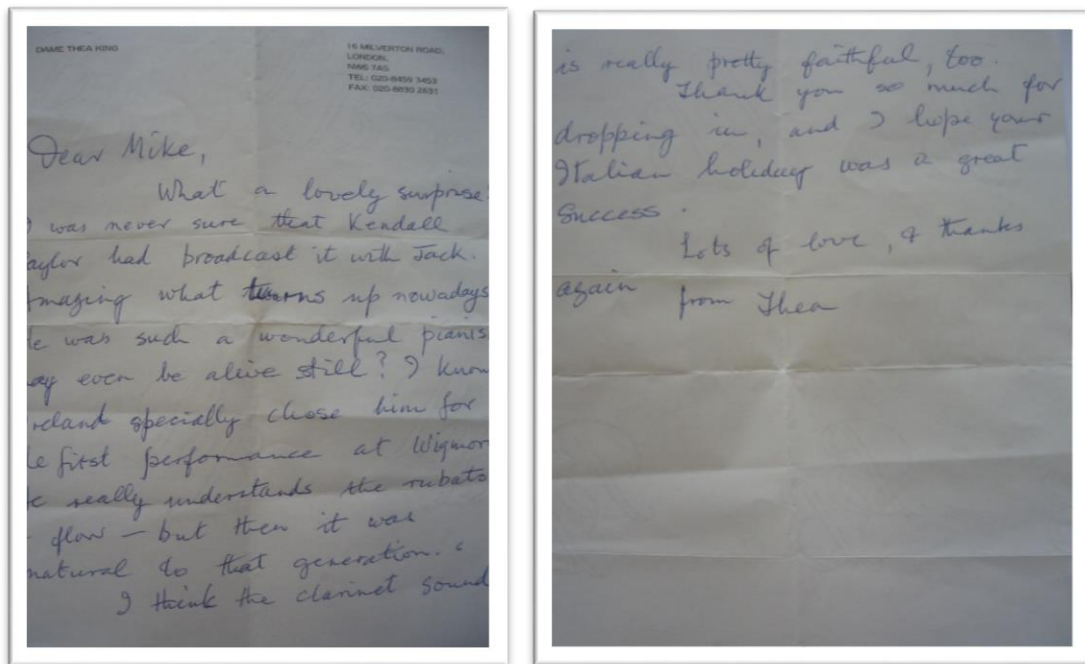 DAME THEA KING
16 MILVERTON ROAD,
LONDON,
NW6 7AS
TEL: 020-8459 3453
FAX: 020-8830 2631
Dear Mike,
What a lovely surprise
I was never sure that Kendall
aylor had broadcast it with Jack.
mazing what turns up nowadays
e was such a wonderful pianis
ay even be alive still? I know
reland specially chose him for
e first performance at Wigmor
e really understands the rubato
flow – but then it was
natural to that generation.
I think the clarinet sound
is really pretty faithful, too.
Thank you so much for
dropping in, and I hope your
Italian holiday was a great
success.
Lots of love, & thanks
again
from Thea